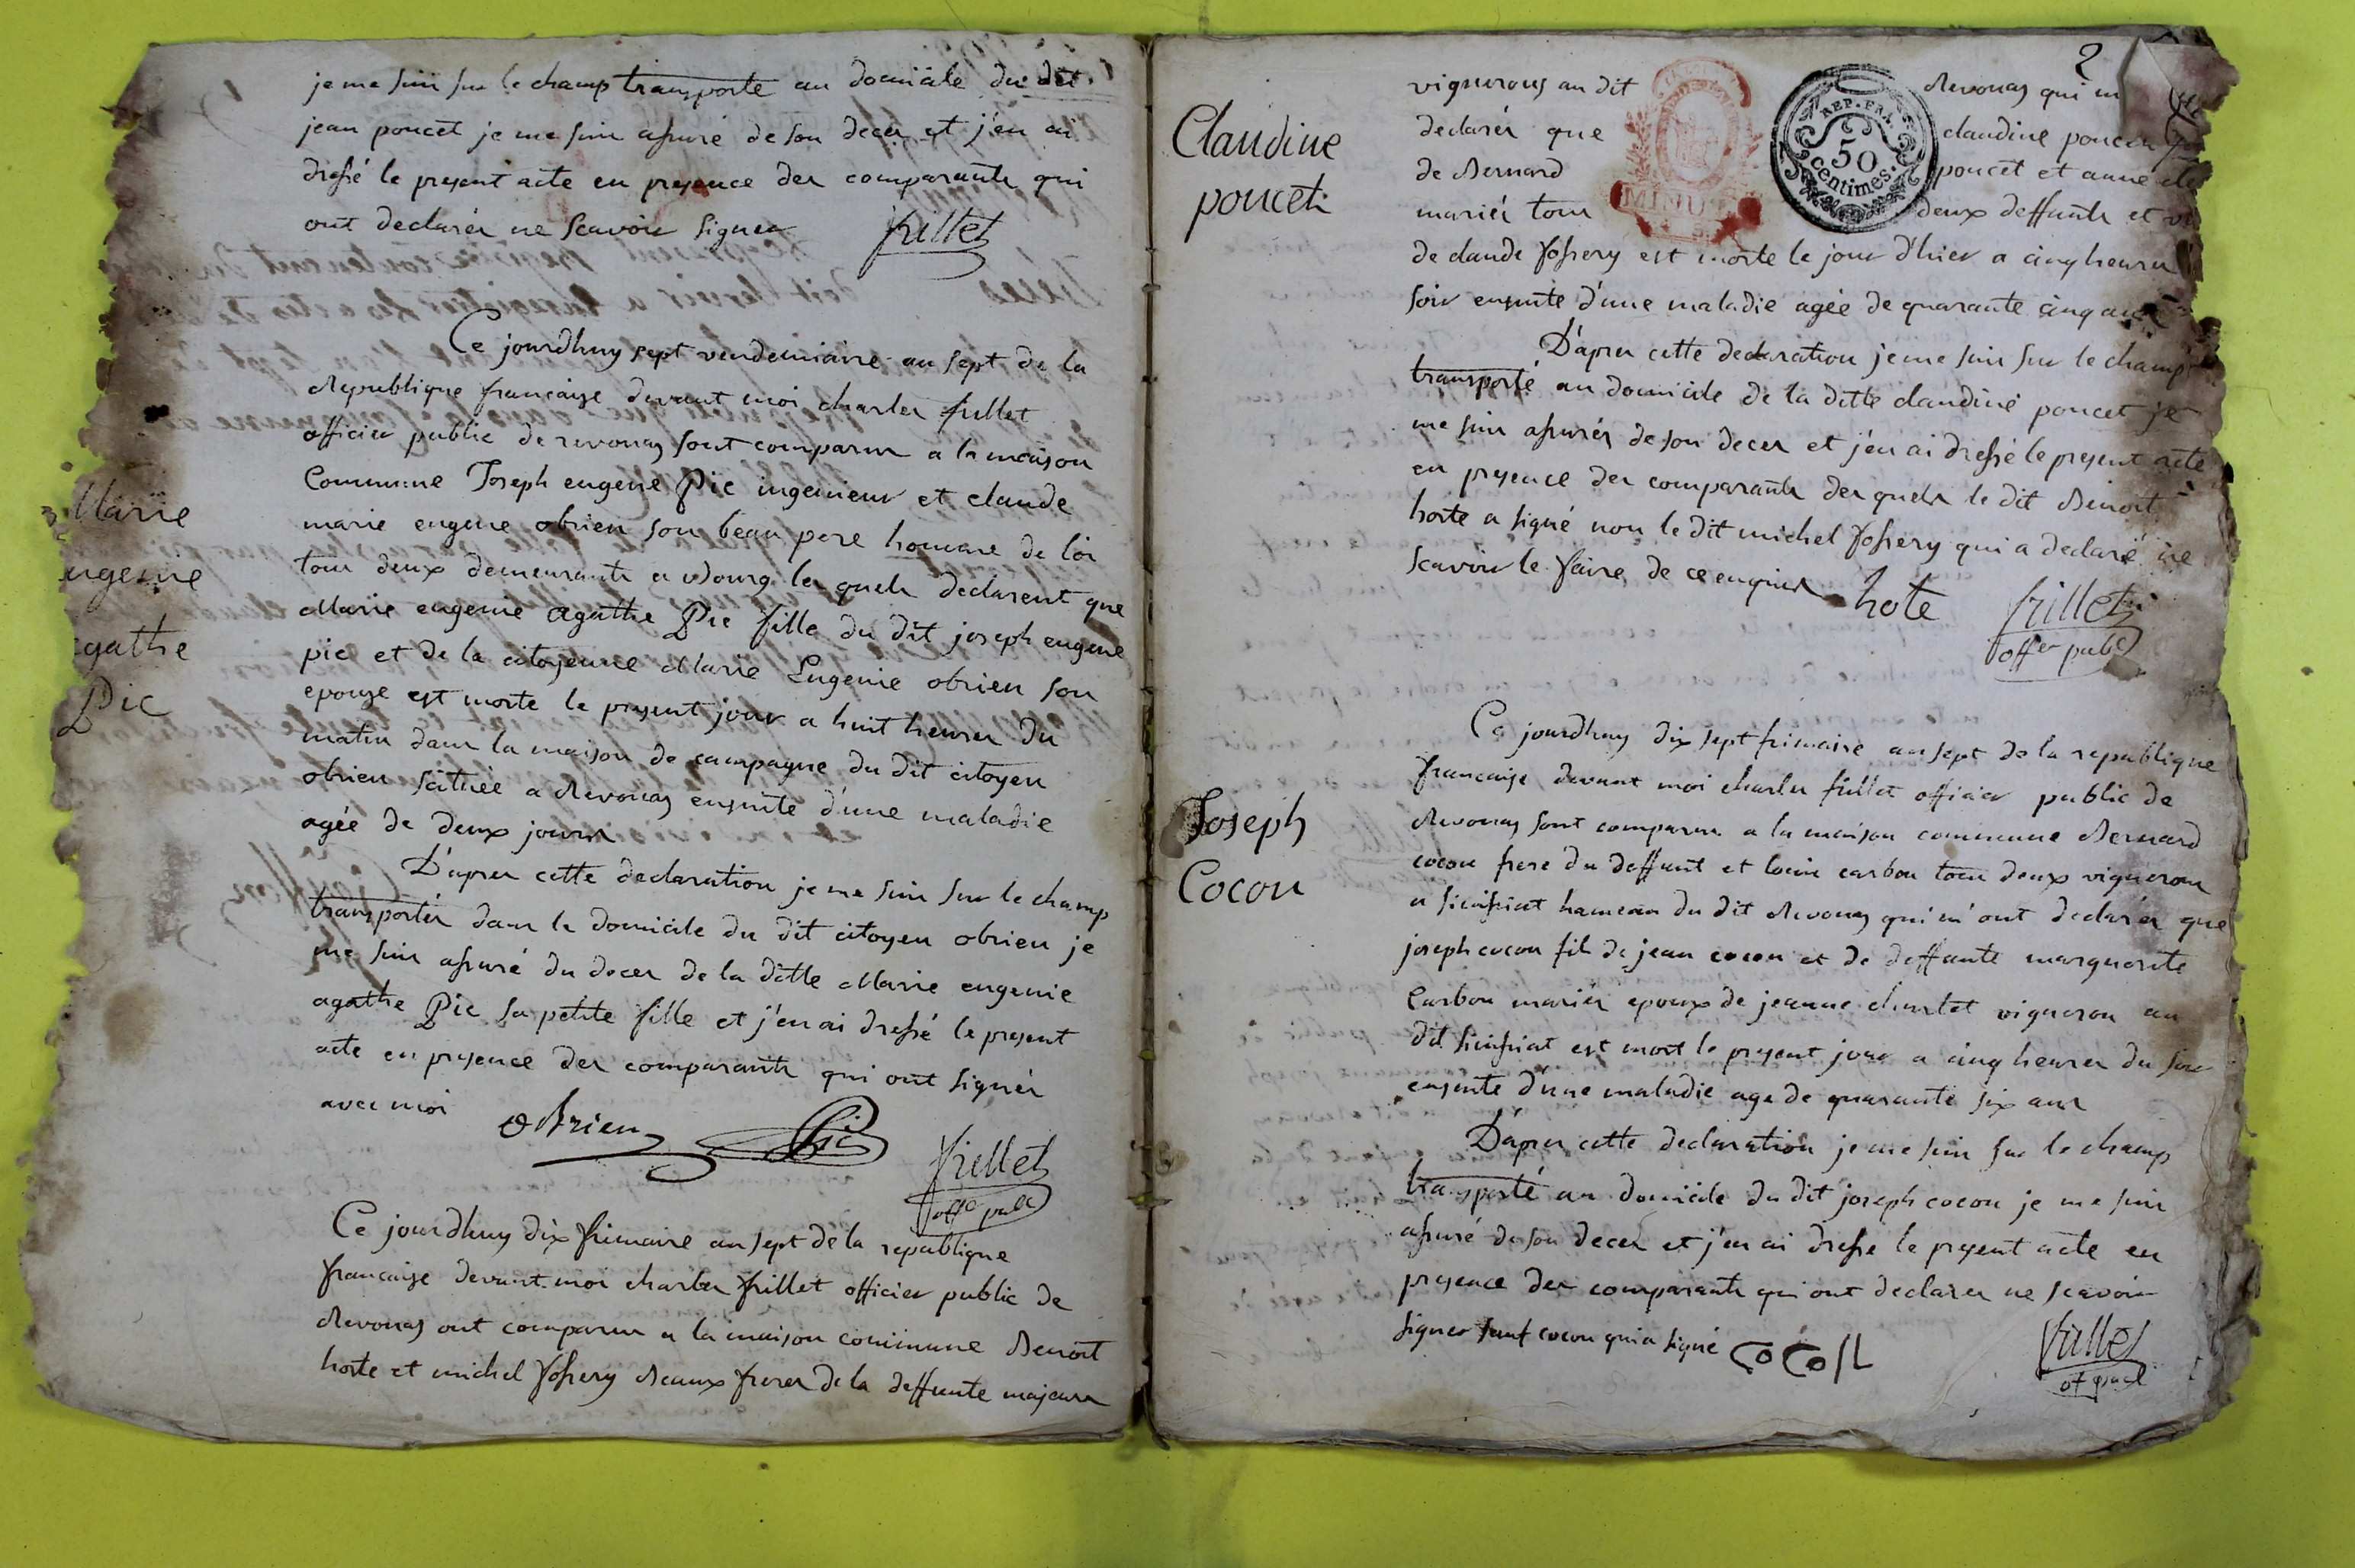 je me suis sur le champ transporté au domicile du dit
jean poncet je me suis assuré de son deces et j'en ai
dressé le present acte en presence des comparants qui
ont declarés ne scavoir signer frillet
Ce jourdhuy sept vendemiaire an sept de la
Republique francaise devant moi charles frillet
officier public de revonas sont comparus a la maison
Commune Joseph eugene Pic ingenieur et claude
marie eugene obrien son beau pere homme de loi
tous deux demeurants a Bourg les quels declarent que
Marie eugenie agathe Pic fille du dit joseph eugene
pic et de la citoyenne Marie Eugenie obrien son
epouse est morte le present jour a huit heures du
matin dans la maison de campagne du dit citoyen
obrien scituée a Revonas ensuite d'une maladie
agée de deux jours
Marie
ugenie
gathe
Pic
D'apres cette declaration je me suis sur le champ
transportés dans le domicile du dit citoyen obrien je
me suis assuré du deces de la ditte Marie eugenie
agathe Pic sa petite fille et j'en ai dressé le present
acte en presence des comparants qui ont signés
avec moi OBrien Pic frillet
offer publ
Ce jourdhuy dix frimaire an sept de la republique
francaise devant moi charles frillet officier public de
Revonas ont comparus a la maison commune Benoit
hoste et michel fossery Beaux freres de la deffunte majeurs
2
Claudine
poncet
vignerons au dit Revonas qui m
declarés que claudine poncet
de Bernard poncet et anne
mariés tous deux deffunts et
de claude fossery est morte le jour d'hier a cinq heures
soir ensuite d'une maladie agée de quarante cinq ans
D'apres cette declaration je me suis sur le champ
transporté au domicile de la ditte claudine poncet je
me suis assurés de son deces et j'en ai dressé le present acte
en presence des comparants des quels le dit Benoit
hoste a signé non le dit michel fossery qui a declaré ne
scavoir le faire de ce enquis hote frillet
offer public
MINUT
REP. FRA.
50
centimes.
Joseph
Cocon
Ce jourdhuy dix sept frimaire an sept de la republique
francaise devant moi charles frillet officier public de
Revonas sont comparus a la maison commune Bernard
cocon frere du deffunt et louis carbon tous deux vignerons
a hameau du dit Revonas qui m'ont declarés que
joseph cocon fils de jean cocon et de deffunte marguerite
Carbon mariés epoux de jeanne vigneron au
dit est mort le present jour a cinq heures du soir
ensuite d'une maladie age de quarante six ans
D'apres cette declaration je me suis sur le champ
transporté au domicile du dit joseph cocon je me suis
assuré de son deces et j'en ai dresse le present acte en
presence des comparants qui ont declares ne scavoir
signer sauf cocon qui a signé COCON frillet
of publ